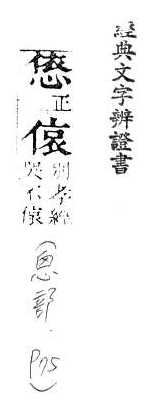 經典文字辨證書
㥋
正
偯
別孝經
哭不偯
部. P75)